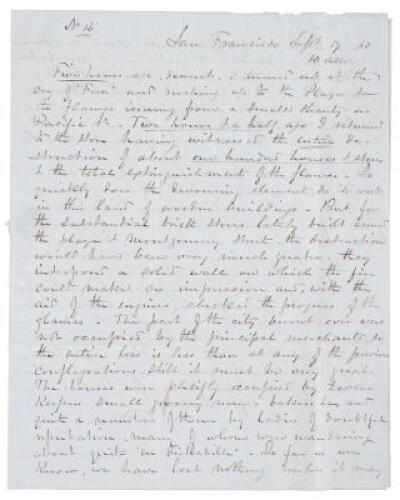 No 16
San Francisco Sept 17 50
10 AM
Five hours ago, I turned out at the
cry of "Fire" and rushing up to the Plaza saw
the flames issuing from a small Shanty on
Pacific St. Two hours & a half ago I returned
to the store having witnessed the entire de-
struction of about one hundred houses & stores
& the total extinguishment of the flames. So
quickly does the devouring element do its work
in this land of wooden buildings. But for
the substantial brick stores lately built around
the plaza & Montgomery Street the destruction
would have been very much greater. They
interposed a solid wall on which the fire
could make no impression and, with the
aid of the engines checked the progress of the
flames. The part of the city burnt over was
not occupied by the principal merchants so
the entire loss is less than at any of the previous
conflagrations still it must be very great.
The houses were chiefly occupied by
Keepers small grocery men & and
quite a number of them by ladies of doubtful
reputation many of whom were wandering
about quite "en dishabille". As far as we
know, we have lost nothing unless it may